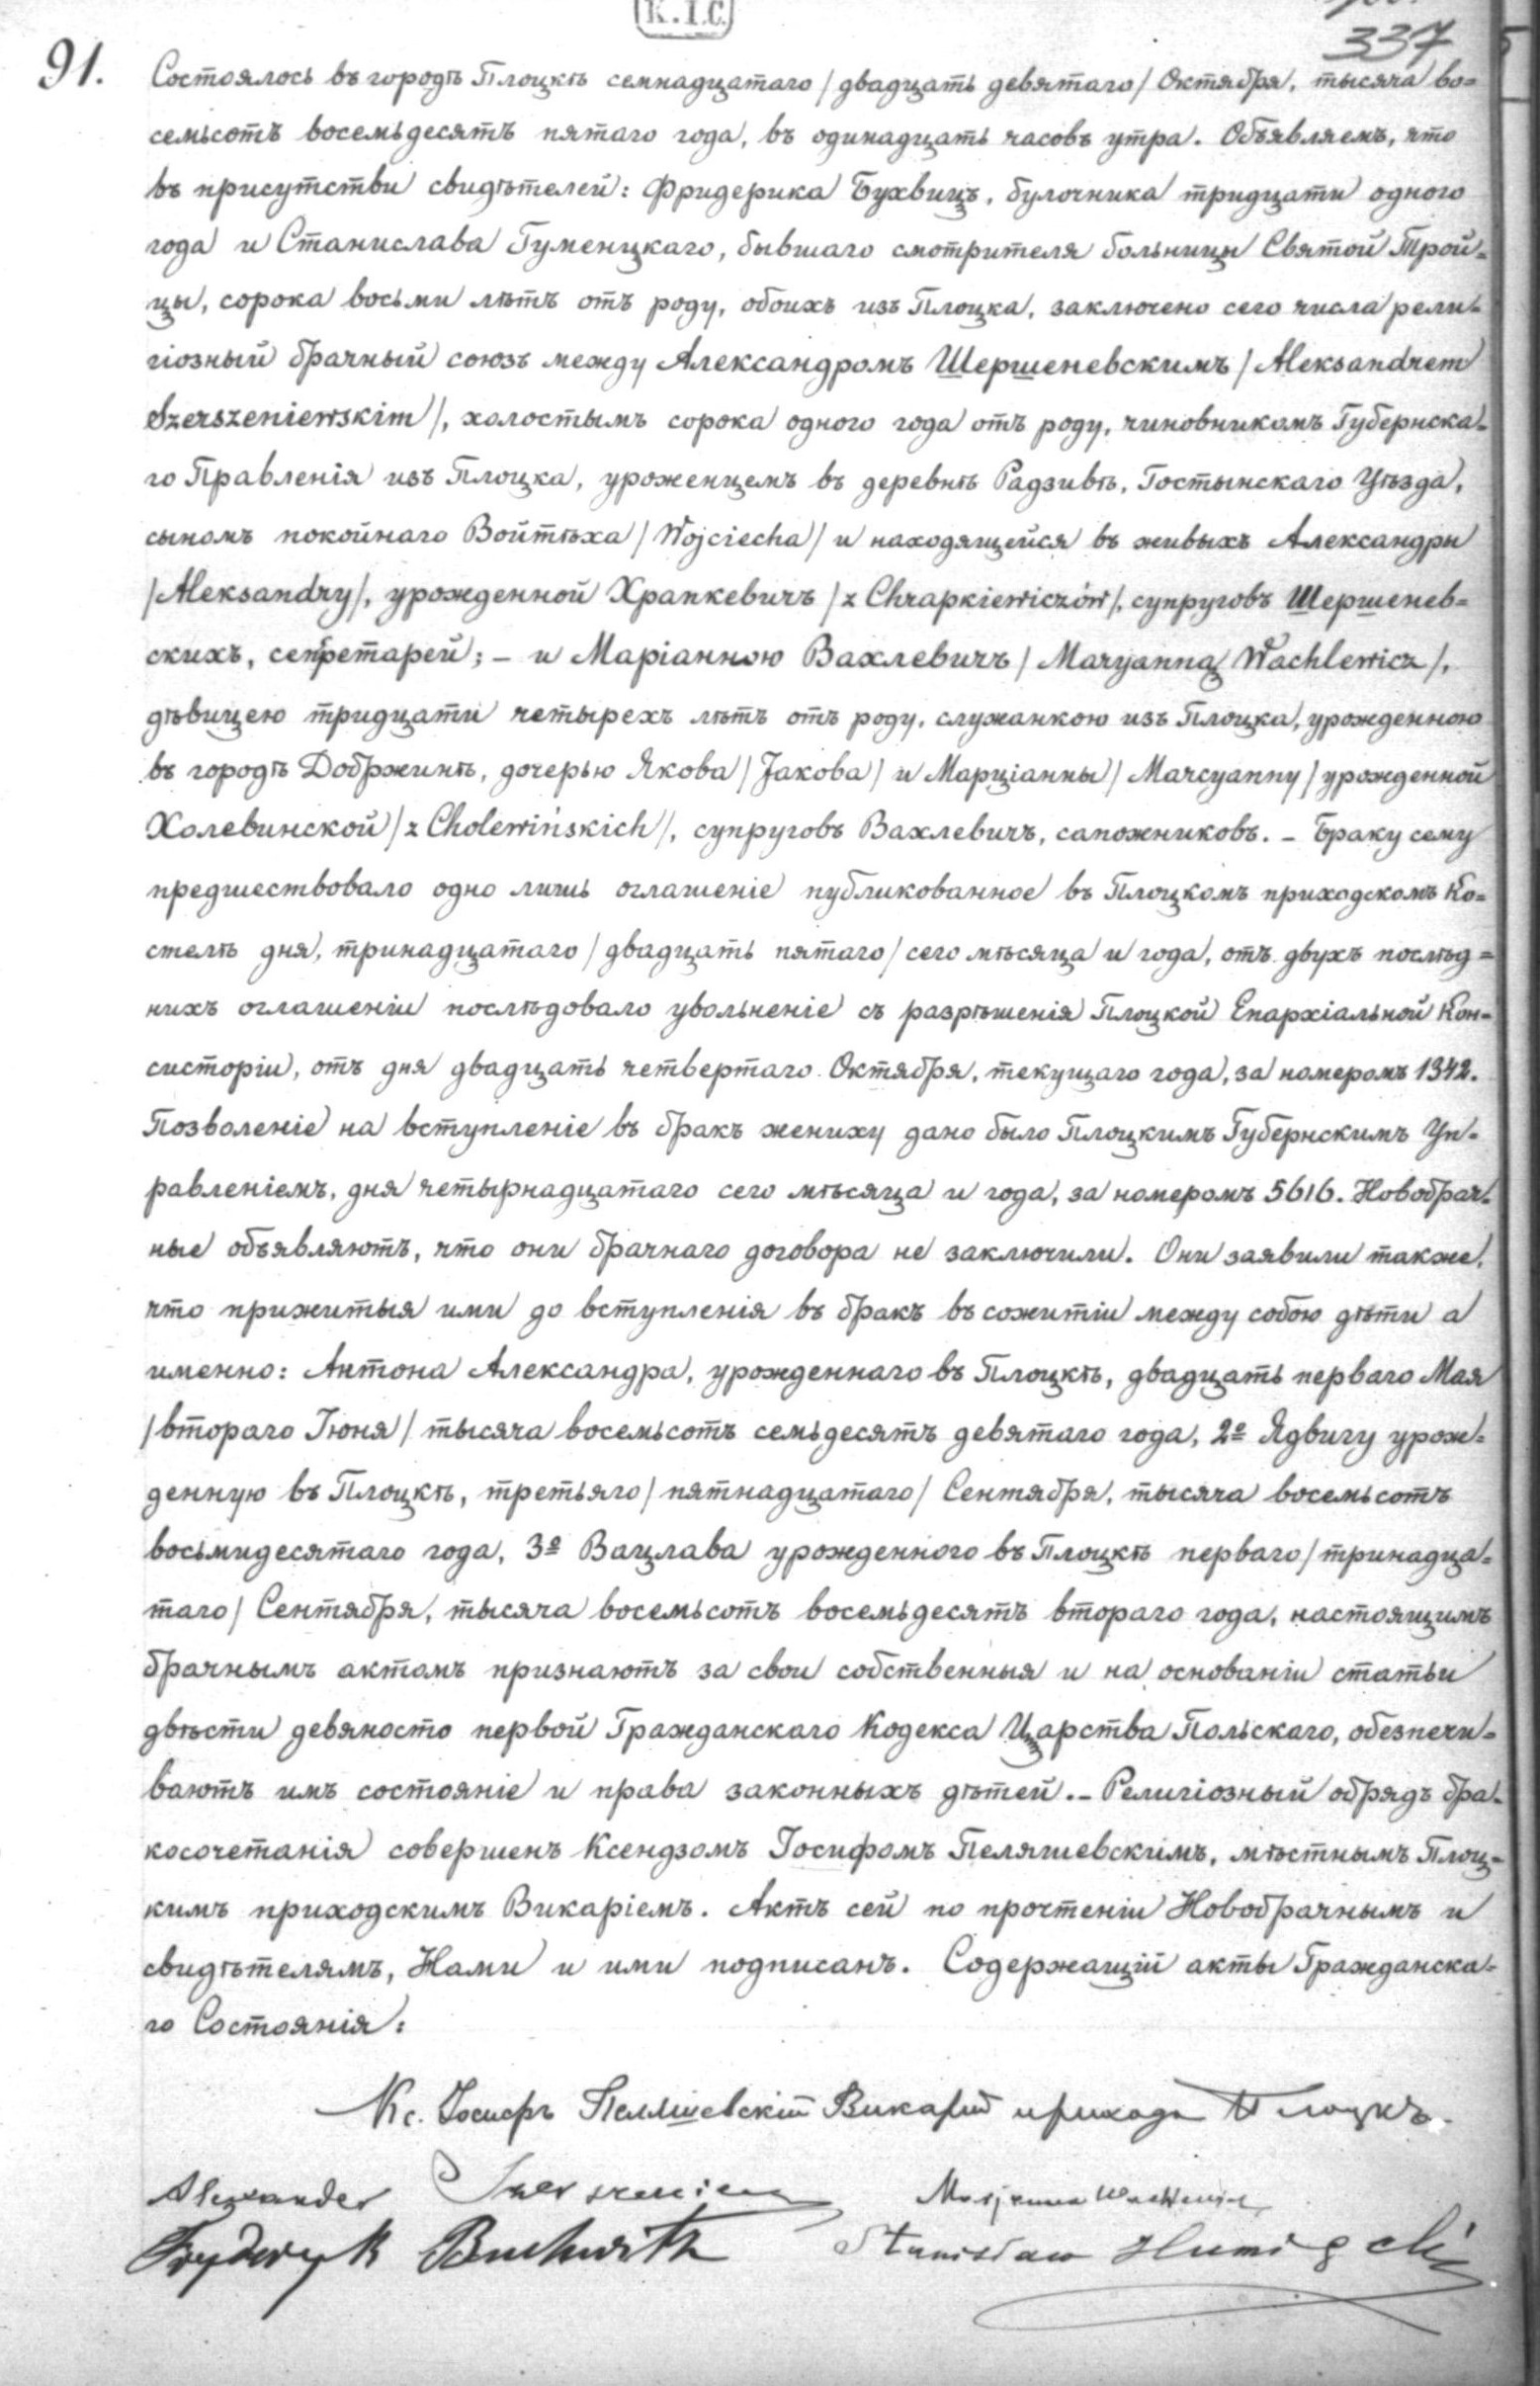 K.I.C.
337
91. Состоялось въ городѣ Плоцкѣ семнадцатаго /двадцать девятаго/ Октября, тысяча во=
семьсотъ восемьдесятъ пятаго года, въ одинадцать часовъ утра. Объявляемъ, что
въ присутстви свидѣтелей: Фридерика Бухвицъ, булочника тридцати одного
года и Станислава Гуменцкаго, бывшаго смотрителя больницы Святой Трой=
цы, сорока восьми лѣтъ отъ роду, обоихъ изъ Плоцка, заключено сего числа рели=
гіозный брачный союзъ между Александромъ Шершеневскимъ /Aleksandrem
Szerszeniewskim/, холостымъ сорока одного года отъ роду, чиновникомъ Губернска=
го Правленія изъ Плоцка, уроженцемъ въ деревнѣ Радзивѣ, Гостынскаго Уѣзда,
сыномъ покойнаго Войтѣха /Wojciecha/ и находящейся въ живыхъ Александры
/Aleksandry/, урожденной Храпкевичъ /z Chrapkiewiczów/, супруговъ Шершенев=
скихъ, секретарей; – и Маріанною Вахлевичъ /Maryanną Wachlewicz/,
дѣвицею тридцати четырехъ лѣтъ отъ роду, служанкою изъ Плоцка, урожденною
въ городѣ Добржинѣ, дочерью Якова /Jakoba/ и Марціанны /Marcyanny/ урожденной
Холевинской /z Cholewińskich/, супруговъ Вахлевичъ, сапожниковъ. – Браку сему
предшествовало одно лишь оглашеніе публикованное въ Плоцкомъ приходскомъ Ко=
стелѣ дня, тринадцатаго /двадцать пятаго/ сего мѣсяца и года, отъ двухъ послѣд=
нихъ оглашеніи послѣдовало увольненіе съ разрѣшенія Плоцкой Епархіальной Кон=
систоріи, отъ дня двадцать четвертаго Октября, текущаго года, за номеромъ 1342.
Позволеніе на вступленіе въ бракъ жениху дано было Плоцкимъ Губернскимъ Уп=
равленіемъ, дня четырнадцатаго сего мѣсяца и года, за номеромъ 5616. Новобрач=
ные объявляютъ, что они брачнаго договора не заключили. Они заявили также,
что прижитыя ими до вступленія въ бракъ въ сожитіи между собою дѣти а
именно: Антона Александра, урожденнаго въ Плоцкѣ, двадцать перваго Мая
/втораго Іюня/ тысяча восемьсотъ семьдесятъ девятаго года, 2º Ядвигу урож=
денную въ Плоцкѣ, третьяго /пятнадцатаго/ Сентября, тысяча восемьсотъ
восьмидесятаго года, 3º Вацлава урожденного въ Плоцкѣ перваго /тринадца=
таго/ Сентября, тысяча восемьсотъ восемьдесятъ втораго года, настоящимъ
брачнымъ актомъ признаютъ за свои собственныя и на основаніи статьи
двѣсти девяносто первой Гражданскаго Кодекса Царства Польскаго, обезпечи=
ваютъ имъ состояніе и права законныхъ дѣтей. – Религіозный обрядъ бра=
косочетанія совершенъ Ксендзомъ Іосифомъ Пеляшевскимъ, мѣстнымъ Плоц=
кимъ приходскимъ Викаріемъ. Актъ сей по прочтеніи Новобрачнымъ и
свидѣтелямъ, Нами и ими подписанъ. Содержащій акты Гражданска=
го Состоянія:
Кс. Іосифъ Пеляшевскій Викарій прихода Плоцкъ.
Alexander Maryanna Wachlewicz
Fryderyk Buchwitz Stanisław